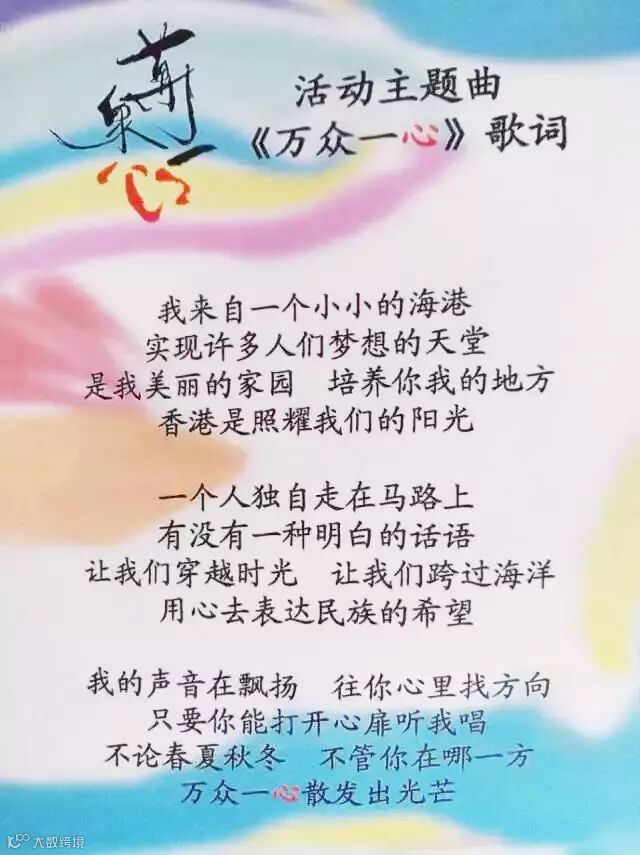 活动主题曲
《万众一心》歌词
我来自一个小小的海港
实现许多人们梦想的天堂
是我美丽的家园 培养你我的地方
香港是照耀我们的阳光
一个人独自走在马路上
有没有一种明白的话语
让我们穿越时光 让我们跨过海洋
用心去表达民族的希望
我的声音在飘扬 往你心里找方向
只要你能打开心扉听我唱
不论春夏秋冬 不管你在哪一方
万众一心散发出光芒
大数跨境